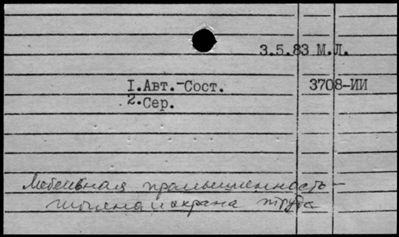 3.5.83 М.Л.
I.Авт.-Сост. 3708-ИИ
2.Сер.
Мебельная промышленность -
гигиена и охрана труда